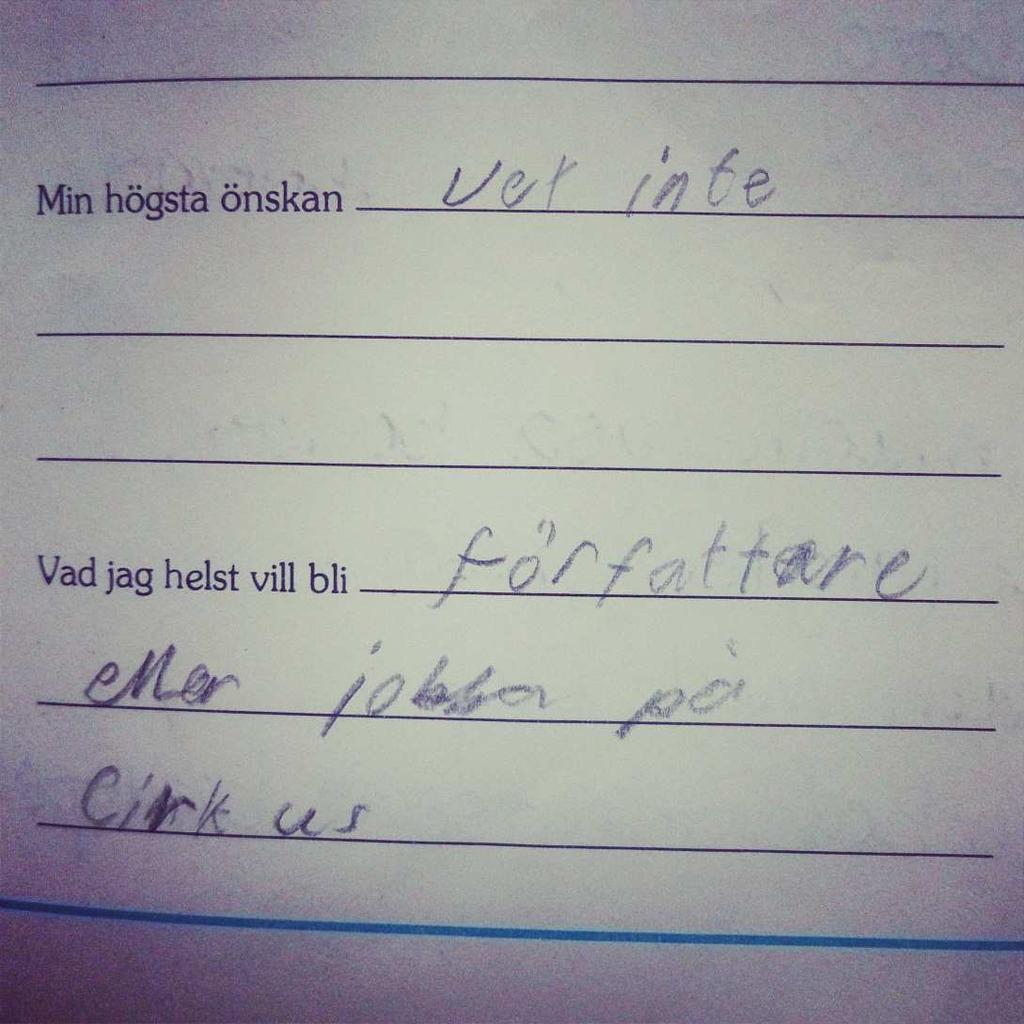 Min högsta önskan vet inte
Vad jag helst vill bli författare
eller jobba på
Cirkus